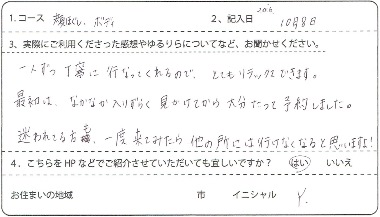 1.コース 顔ほぐし、ボディ 2、記入日 10月8日
3、実際にご利用くださった感想やゆるりらについてなど、お聞かせください。
一人ずつ丁寧に行なってくれるので、とてもリラックスできます。
最初は、なかなか入りづらく見かけてから大分たって予約しました。
迷われてる方、一度来てみたら他の所には行けなくなると思います!
4、こちらをHPなどでご紹介させていただいても宜しいですか? はい いいえ
お住まいの地域 市 イニシャル Y.